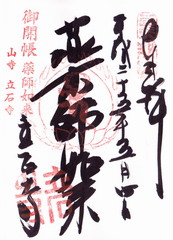 奉拝
平成二十五年五月四日
薬師如来
立石寺
御開帳 薬師如来
山寺 立石寺